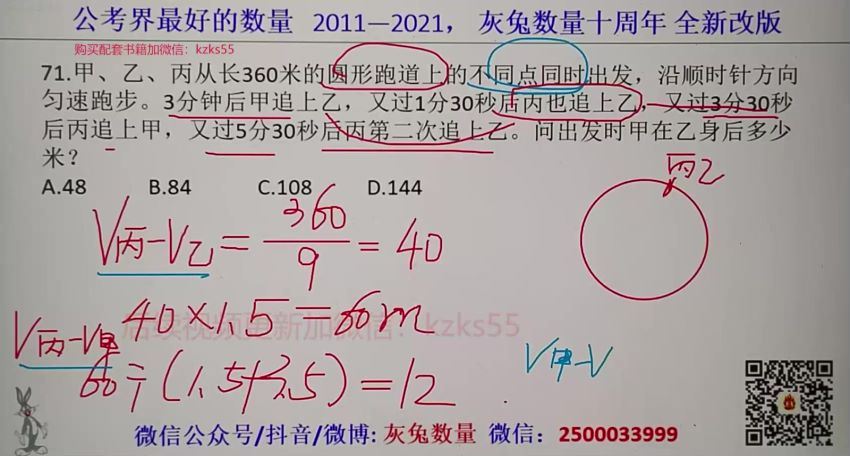 公考界最好的数量 2011—2021，灰兔数量十周年 全新改版
购买配套书籍加微信：kzks55
71.甲、乙、丙从长360米的圆形跑道上的不同点同时出发，沿顺时针方向
匀速跑步。3分钟后甲追上乙，又过1分30秒后丙也追上乙，又过3分30秒
后丙追上甲，又过5分30秒后丙第二次追上乙。问出发时甲在乙身后多少
米？
A.48 B.84 C.108 D.144
丙乙
V丙-V乙 = 360/9 = 40
40×1.5=60m
后续视频更新加微信：kzks55
V丙-V甲
60÷(1.5+3.5)=12
V甲-V
微信公众号/抖音/微博: 灰兔数量 微信：2500033999